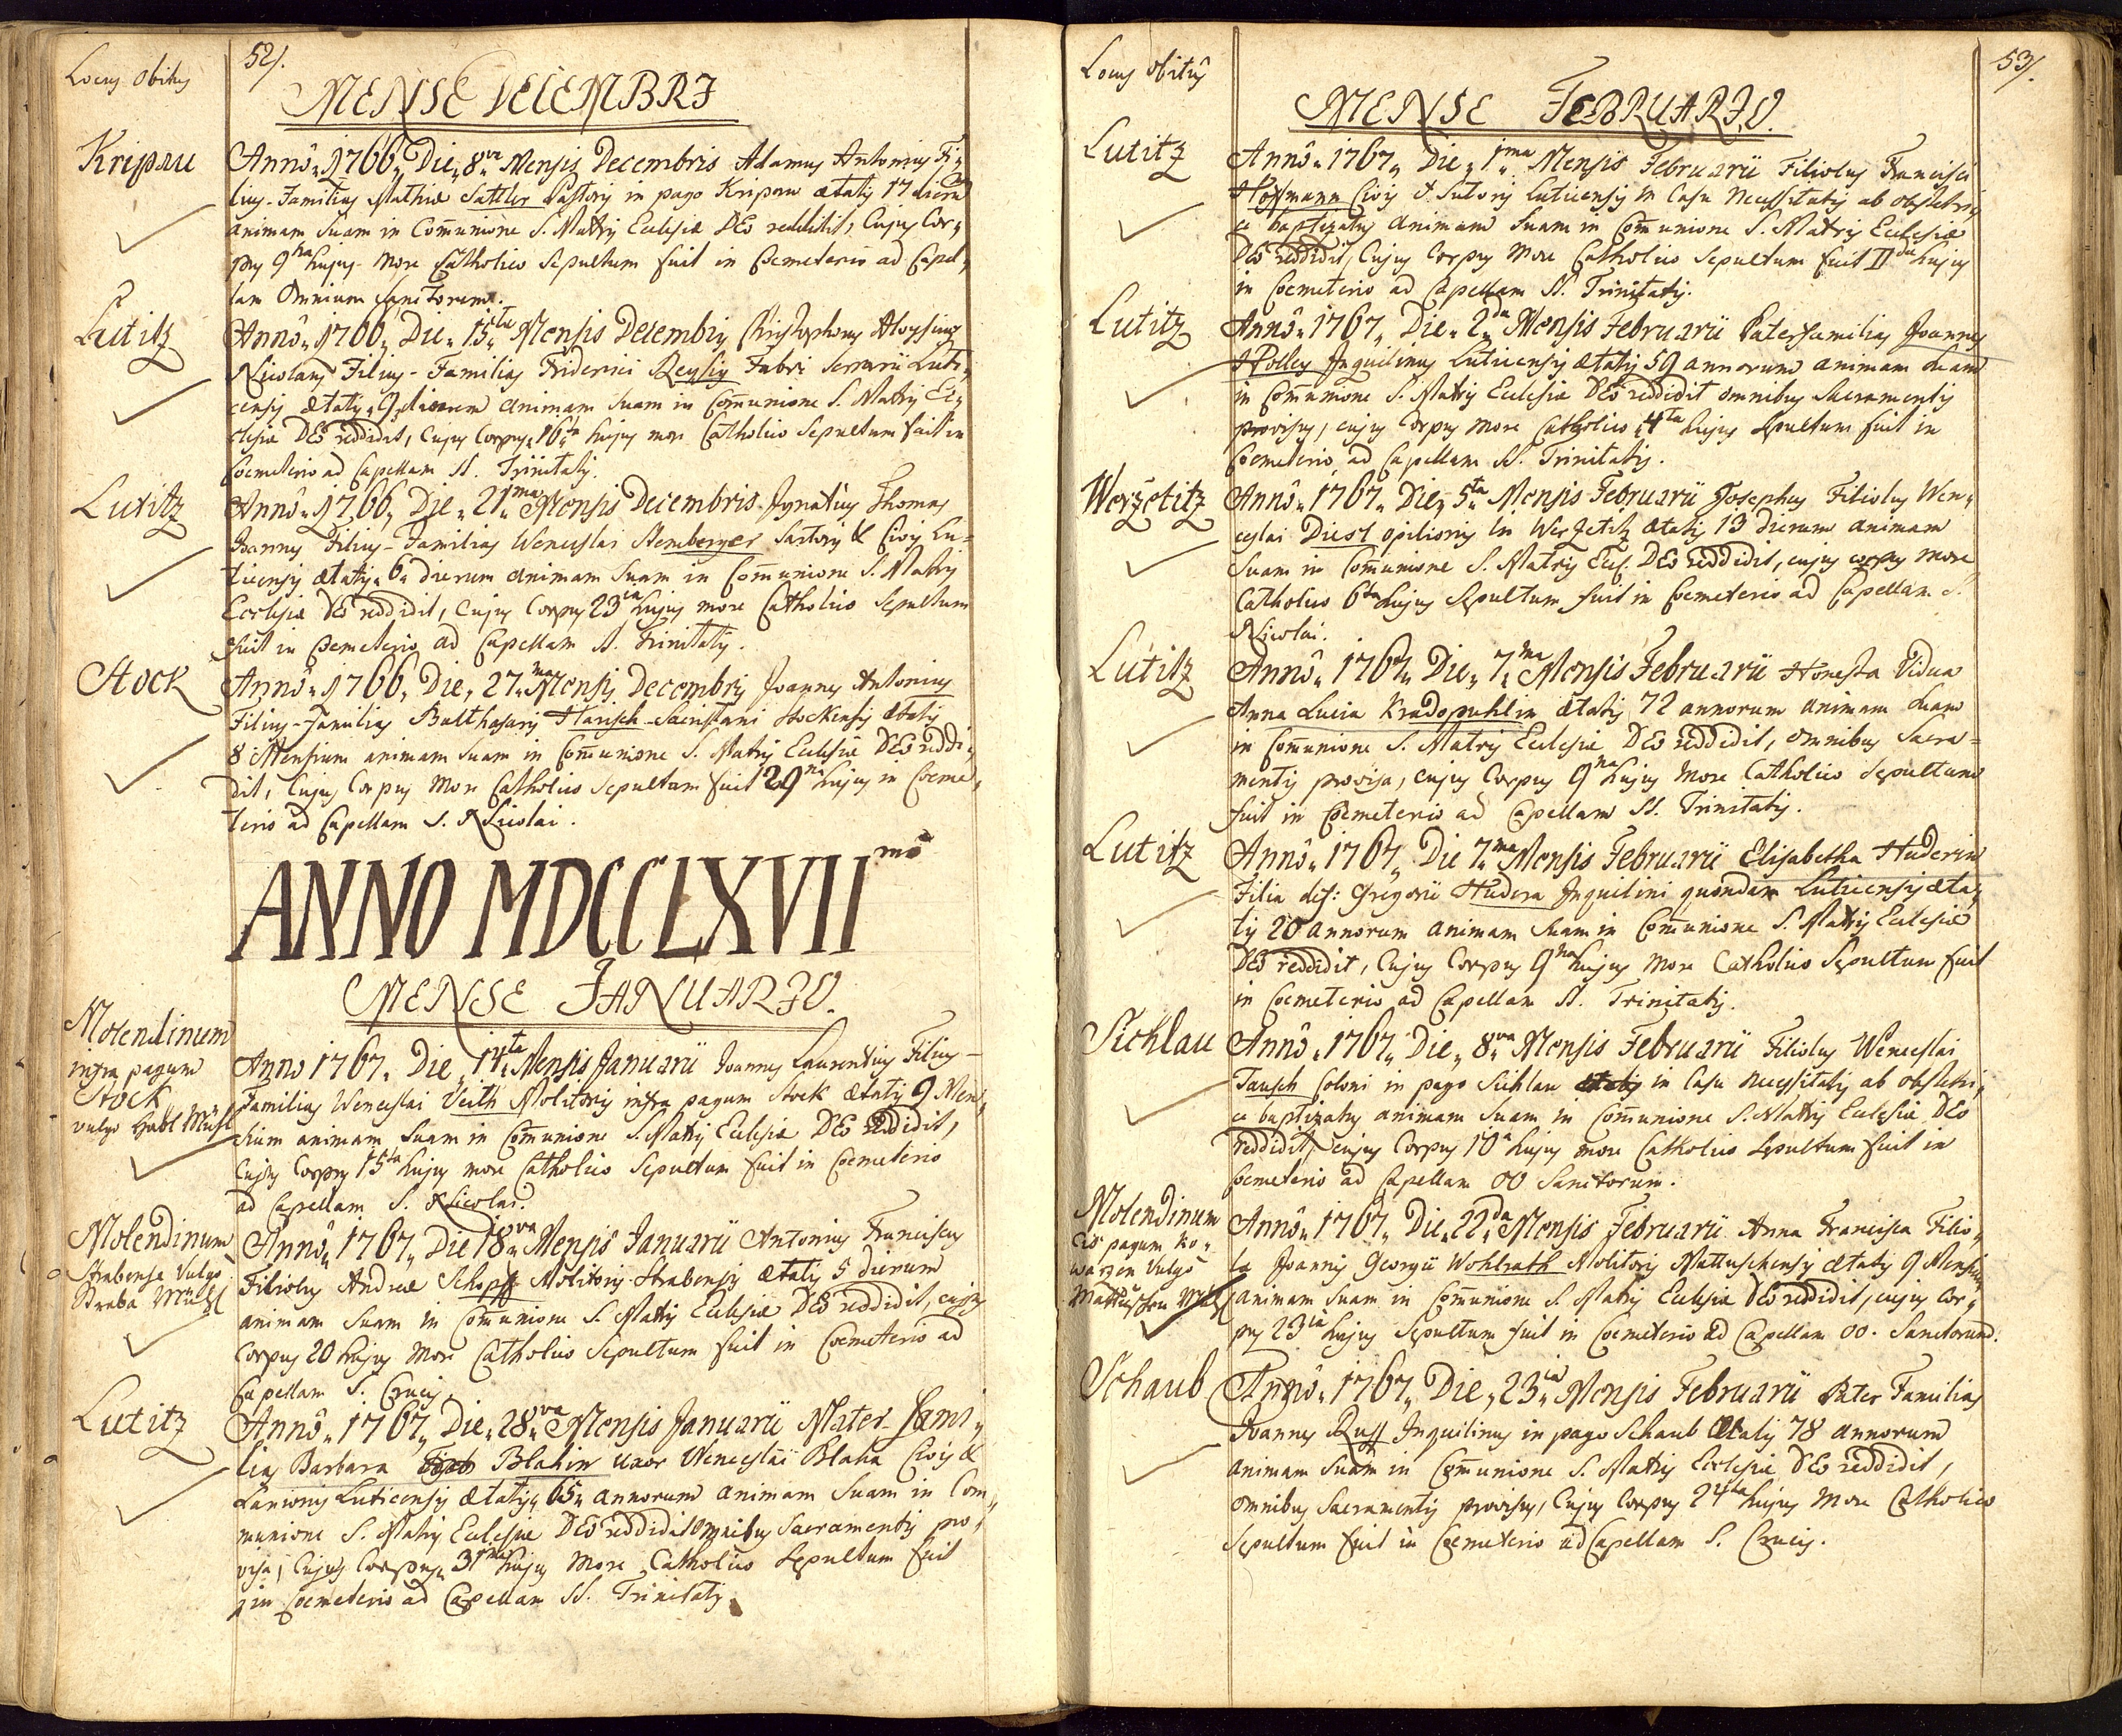 Locus obitus
52/.
MENSE DECEMBRI
Kripau
Anno 1766 Die 8va Mensis Decembris Adamus Antonius Fi„
lius-Familias Mathiæ Sattler Pastoris in pago Kripau ætatis 17 dierum
animam suam in Com̄unione S. Matris Ecclesiæ DEo reddidit, Cujus Cor„
pus 9na hujus more Catholico Sepultum fuit in Coemeterio ad Capel„
lam Omnium Sanctorum.
Lutitz
Anno 1766 Die 15ta Mensis Decembris Christophorus Aloysius
Nicolaus Filius-Familias Friderici Reysig Fabri Serrarii Luti„
censis ætatis 9 dierum animam suam in Com̄unione S. Matris Ec„
clesiæ DEo reddidit, Cujus Corpus 16ta hujus more Catholico Sepultum fuit in
Coemeterio ad Capellam SS. Trinitatis.
Lutitz
Anno 1766 Die 21ma Mensis Decembris Ignatius Thomas
Joannes Filius-Familias Wenceslai Sternberger Sartoris & Civis Lu=
ticensis ætatis 6 dierum animam suam in Com̄unione S. Matris
Ecclesiæ DEo reddidit, Cujus Corpus 23ia hujus more Catholico Sepultum
fuit in Coemeterio ad Capellam SS. Trinitatis.
Stock
Anno 1766 Die 27ma Mensis Decembris Joannes Antonius
Filius-Familias Balthasaris Harisch Sacristani Stockensis ætatis
8 Mensium animam suam in Com̄unione S. Matris Ecclesiæ DEo reddi„
dit, Cujus Corpus More Catholico Sepultum fuit 29na hujus in Coeme„
terio ad Capellam S. Nicolai.
ANNO MDCCLXVIImo
MENSE JANUARIO.
Molendinum
infra pagum
Stock
vulgo Mühl
Anno 1767 Die 14ta Mensis Januarii Joannes Laurentius Filius-
Familias Wenceslai Veith Molitoris infra pagum Stock ætatis 9 Men„
sium animam suam in Com̄unione S. Matris Ecclesiæ DEo reddidit,
Cujus Corpus 15ta hujus more Catholico Sepultum fuit in Coemeterio
ad Capellam S. Nicolai.
Molendinum
Strabense Vulgo
Straba Mühl
Anno 1767 Die 18va Mensis Januarii Antonius Franciscus
Filiolus Andreæ Schopff Molitoris Strabensis ætatis 5 dierum
animam suam in Com̄unione S. Matris Ecclesiæ DEo reddidit, cujus
Corpus 20 hujus More Catholico Sepultum fuit in Coemeterio ad
Capellam S. Crucis.
Lutitz
Anno 1767 Die 28va Mensis Januarii Mater-fami„
lias Barbara Blahin uxor Wenceslai Blaha Civis &
Lanionis Luticensis ætatis 65 annorum animam suam in Com„
munione S. Matris Ecclesiæ DEo reddidit omnibus Sacramentis pro„
visa, Cujus Corpus 31ma hujus More Catholico Sepultum fuit
in Coemeterio ad Capellam SS. Trinitatis.
Locus obitus
53/.
MENSE FEBRUARIO.
Lutitz
Anno 1767 Die 1ma Mensis Februarii Filiolus Francisci
Hoffmann Civis & Sutoris Luticensis in Casu Necessitatis ab obstetri„
ce baptizatus animam suam in Com̄unione S. Matris Ecclesiæ
DEo reddidit, Cujus Corpus More Catholico Sepultum fuit IIda hujus
in Coemeterio ad Capellam SS. Trinitatis.
Lutitz
Anno 1767 Die 2da Mensis Februarii Paterfamilias Joannes
Holley Inquilinus Luticensis ætatis 59 annorum animam suam
in Com̄unione S. Matris Ecclesiæ DEo reddidit omnibus Sacramentis
provisus, cujus Corpus more Catholico 4ta hujus Sepultum fuit in
Coemeterio ad Capellam SS. Trinitatis.
Werzetitz
Anno 1767 Die 5ta Mensis Februarii Josephus Filiolus Wen„
ceslai Diest opilionis in Werzetitz ætatis 13 dierum animam
suam in Com̄unione S. Matris Eccl. DEo reddidit, cujus corpus more
Catholico 6ta hujus Sepultum fuit in Coemeterio ad Capellam S.
Nicolai.
Lutitz
Anno 1767 Die 7ma Mensis Februarii Honesta Vidua
Anna Lucia Kradopuhlin ætatis 72 annorum animam suam
in Com̄unione S. Matris Ecclesiæ DEo reddidit, omnibus Sacra=
mentis provisa, cujus Corpus 9na hujus More Catholico Sepultum
fuit in Coemeterio ad Capellam SS. Trinitatis.
Lutitz
Anno 1767 Die 7ma Mensis Februarii Elisabetha Huderin
Filia def: Gregorii Hudera Inquilini quondam Luticensis æta„
tis 20 annorum animam suam in Com̄unione S. Matris Ecclesiæ
DEo reddidit, Cujus Corpus 9na hujus More Catholico Sepultum fuit
in Coemeterio ad Capellam SS. Trinitatis.
Sichlau
Anno 1767 Die 8va Mensis Februarii Filiolus Wenceslai
Tausch Coloni in pago Sichlau ætatis in Casu necessitatis ab obstetri„
ce baptizatus animam suam in Com̄unione S. Matris Ecclesiæ DEo
reddidit, cujus Corpus 10a hujus more Catholico Sepultum fuit in
Coemeterio ad Capellam OO Sanctorum.
Molendinum
cis pagum Ko„
warzen Vulgo
Mattuschen Mühl
Anno 1767 Die 22da Mensis Februarii Anna Francisca Filio„
la Joannis Georgii Wohlrath Molitoris Mattuschensis ætatis 9 Mensium
animam suam in Com̄unione S. Matris Ecclesiæ DEo reddidit, cujus Cor„
pus 23ia hujus Sepultum fuit in Coemeterio ad Capellam OO. Sanctorum.
Schaub
Anno 1767 Die 23ia Mensis Februarii Pater Familias
Joannes Russ Inquilinus in pago Schaub ætatis 78 annorum
animam suam in Com̄unione S. Matris Ecclesiæ DEo reddidit,
omnibus Sacramentis provisus, Cujus Corpus 24ta hujus More Catholico
Sepultum fuit in Coemeterio ad Capellam S. Crucis.